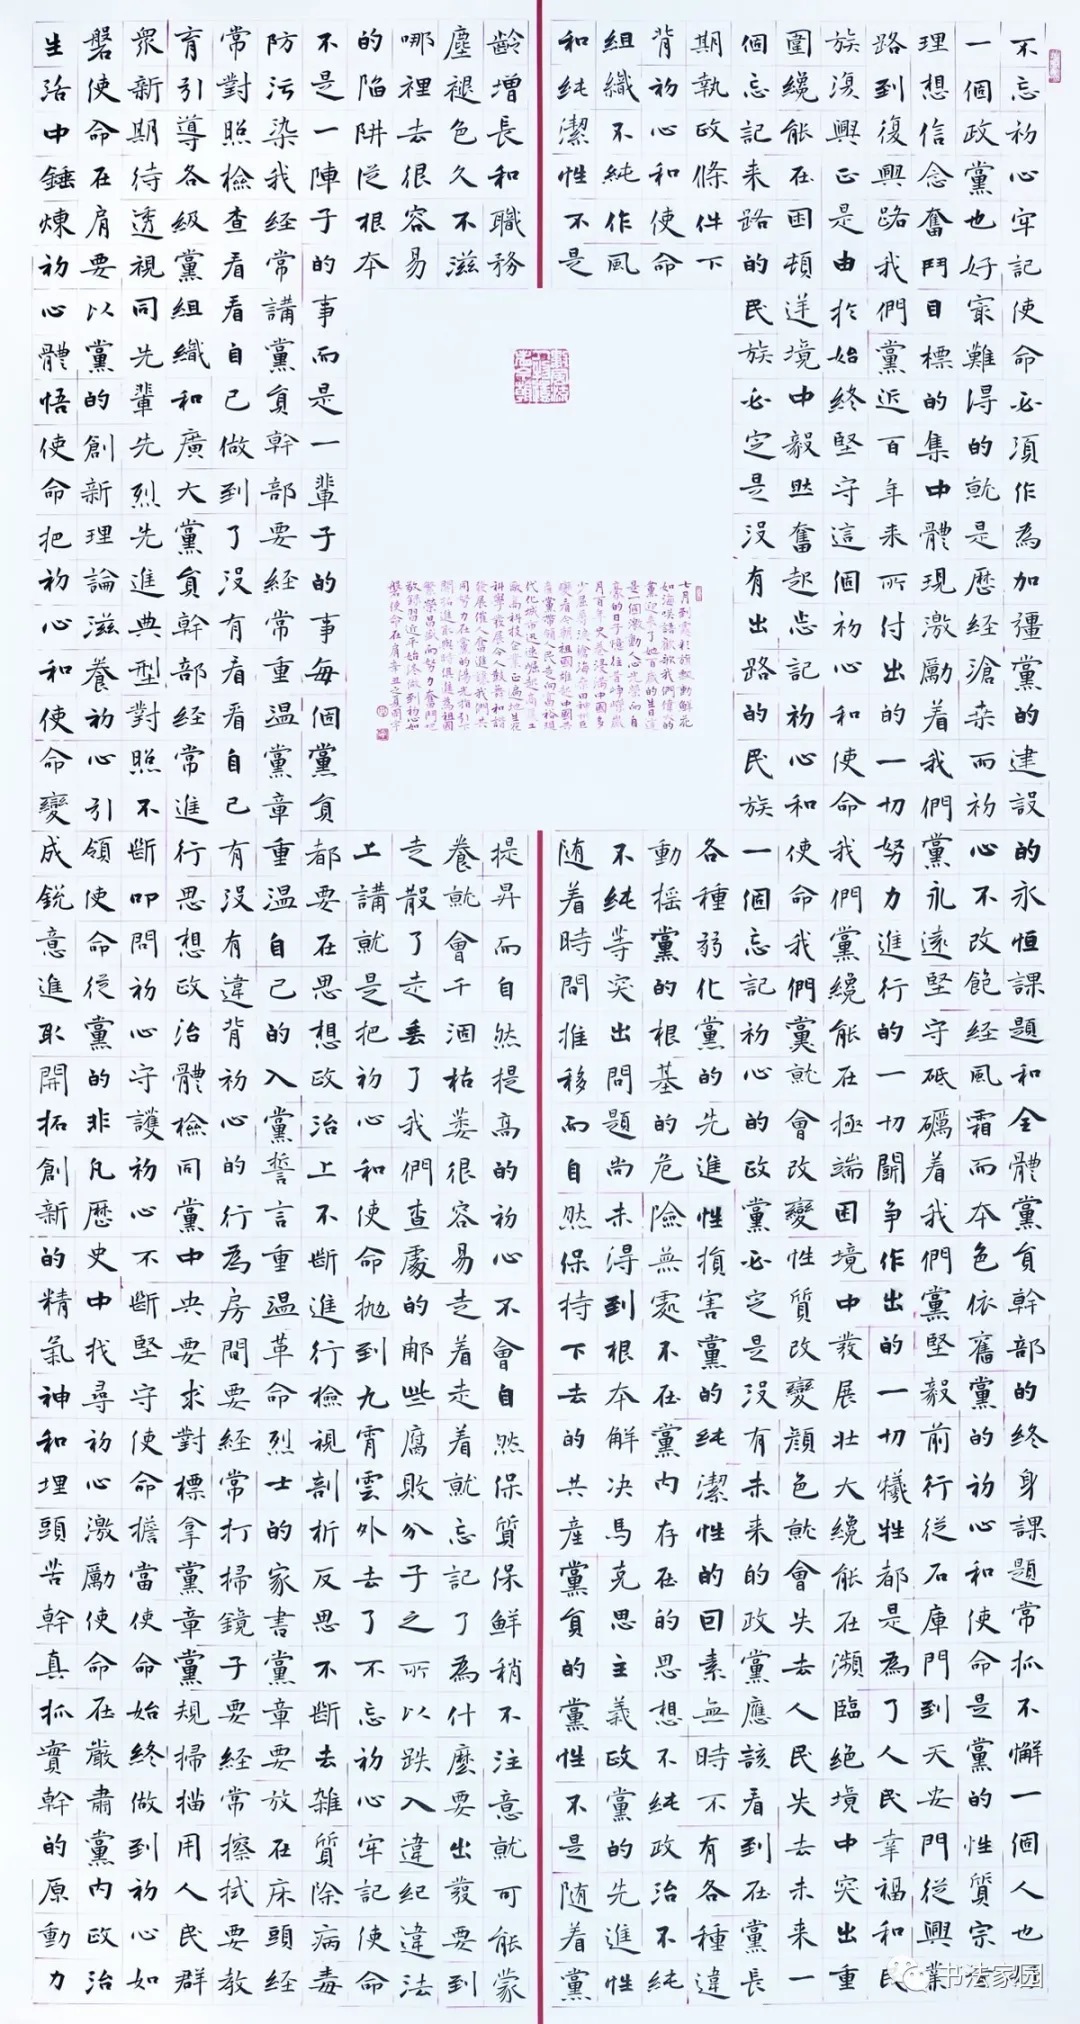 不忘初心牢記使命必須作為加彊黨的建設的永恒課題和全體黨員幹部的終身課題常抓不懈一個人也
一個政黨也好冣難得的就是歷經滄桑而初心不改飽經風霜而本色依舊黨的初心和使命是黨的性質宗
理想信念奮鬥目標的集中體現激勵着我們黨永遠堅守砥礪着我們黨堅毅前行從石庫門到天安門從興業
路到復興路我們黨近百年來所付出的一切努力進行的一切鬬争作出的一切犧牲都是為了人民幸福和民
族復興正是由於始終堅守這個初心和使命我們黨纔能在極端困境中發展壯大纔能在瀕臨絕境中突出重
圍纔能在困頓逆境中毅然奮起忘記初心和使命我們黨就會改變性質改變顏色就會失去人民失去未來一
個忘記來路的民族必定是沒有出路的民族一個忘記初心的政黨必定是沒有未來的政黨應該看到在黨長
期執政條件下各種弱化黨的先進性損害黨的純潔性的因素無時不有各種違
背初心和使命動搖黨的根基的危險無處不在黨內存在的思想不純政治不純
組織不純作風不純等突出問題尚未得到根本解決馬克思主義政黨的先進性
和純潔性不是随着時間推移而自然保持下去的共産黨員的黨性不是随着黨
齡增長和職務提昇而自然提高的初心不會自然保質保鮮稍不注意就可能蒙
塵褪色久不滋養就會干涸枯萎很容易走着走着就忘記了為什麼要出發要到
哪裡去很容易走散了走丢了我們查處的那些腐敗分子之所以跌入違紀違法
的陷阱從根本上講就是把初心和使命抛到九霄雲外去了不忘初心牢記使命
不是一陣子的事而是一輩子的事每個黨員都要在思想政治上不断進行檢視剖析反思不断去雜質除病毒
防污染我經常講黨員幹部要經常重温黨章重温自己的入黨誓言重温革命烈士的家書黨章要放在床頭經
常對照檢查看看自己做到了沒有看看自己有沒有違背初心的行為房間要經常打掃鏡子要經常擦拭要教
育引導各級黨組織和廣大黨員幹部經常進行思想政治體檢同黨中央要求對標拿黨章規掃描用人民群
衆新期待透視同先輩先烈先進典型對照不断叩問初心守護初心不断堅守使命擔當使命始終做到初心如
磐使命在肩要以黨的創新理論滋養初心引領使命從黨的非凡歷史中找尋初心激勵使命在嚴肅黨內政治
生活中錘煉初心體悟使命把初心和使命變成鋭意進取開拓創新的精氣神和埋頭苦幹真抓實幹的原動力
七月到處彩旗飄動鮮花
黨迎來了她百歲的生日這
是一個激動人心光榮而自
豪的日子憶往昔崢嶸歲
發展催人奮進讓我們共
同努力在黨的陽光指引下
開拓進取與時俱進為祖國
繁榮昌盛而努力奮鬥
磐使命在肩辛丑之夏
书法家园